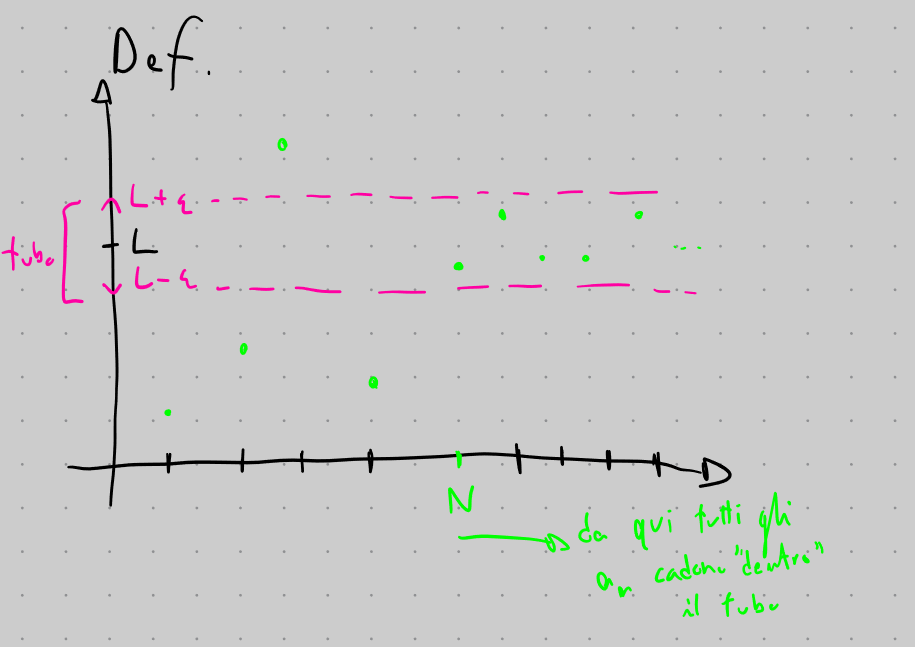 Def.
L+ε
L
tubo
L-ε
N
da qui tutti gli
an cadono "dentro"
il tubo